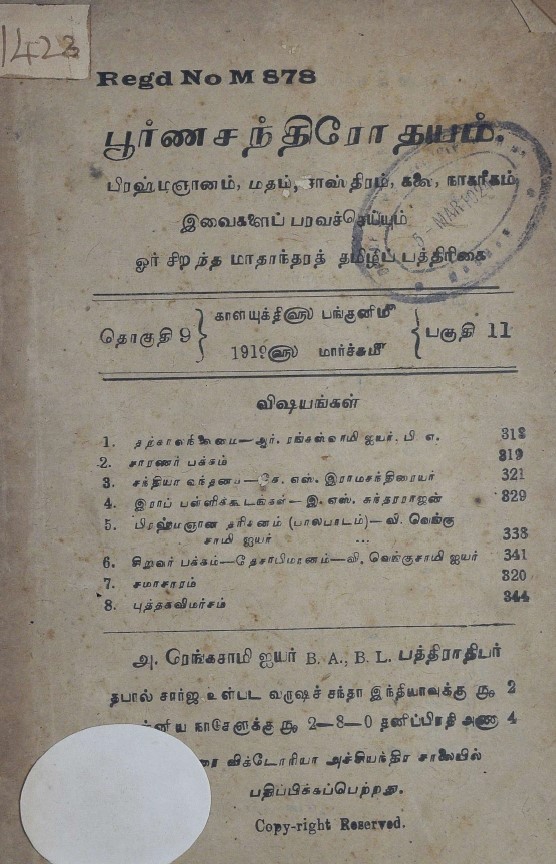 1423
Regd No M 878
பூர்ணசந்திரோதயம்.
பிரஹ்மஞானம், மதம், சாஸ்திரம், கலை, நாகரீகம்
இவைகளைப் பரவச்செய்யும்
ஓர் சிறந்த மாதாந்தரத் தமிழ்ப் பத்திரிகை
5-MAR 1920
தொகுதி 9 காளயுக்தி௵ பங்குனிமீ பகுதி 11
1919௵ மார்ச்சுமீ
விஷயங்கள்
1. தற்காலநிலைமை—ஆர். ரங்கஸ்வாமி ஐயர், பி. ஏ. 313
2. சாரணர் பக்கம் 319
3. சந்தியா வந்தனம்—கே. எஸ். இராமசந்திரையர் 321
4. இராப் பள்ளிக்கூடங்கள்—இ. எஸ். சுந்தரராஜன் 329
5. பிரஹ்மஞான தரிசனம் (பாலபாடம்)—வி. வெங்கு
சாமி ஐயர் ... 338
6. சிறுவர் பக்கம்—தேசாபிமானம்—வி. வெங்குசாமி ஐயர் 341
7. சமாசாரம் 320
8. புத்தகவிமர்சம் 344
அ. ரெங்கசாமி ஐயர் B. A., B. L. பத்திராதிபர்
தபால் சார்ஜ உள்பட வருஷச் சந்தா இந்தியாவுக்கு ரூ 2
நாடுகளுக்கு ரூ 2—8—0 தனிப்பிரதி அணா 4
விக்டோரியா அச்சியந்திர சாலையில்
பதிப்பிக்கப்பெற்றது.
Copy-right Reserved.